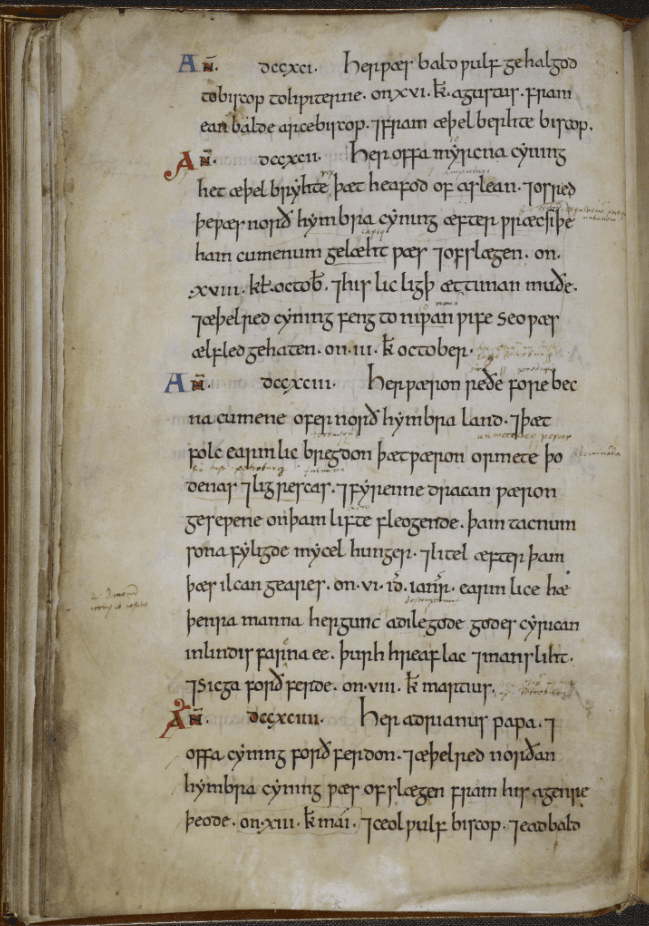 An̄. dccxci. Her ƿæs baldƿulf gehalgod
to biscop to hƿiterne. on xvi. k̄. agustus. fram
eanbalde arcebiscop. ⁊ fram æþelberhte biscop.
An̄. dccxcii. Her offa myrcna cyning
het æþelbryhte þæt heafod of aslean. ⁊ osred
þe ƿæs norð hymbria cyning æfter ƿræcsiþe
ham cumenum gelæht ƿæs ⁊ ofslægen. on.
.xviii. kł. octob̄. ⁊ his lic ligþ æt tinan muðe.
⁊ æþelred cyning feng to niƿan ƿife seo ƿæs
ælfled gehaten. on. iii. k̄ october.
An̄. dccxciii. Her ƿæron reðe forebec
na cumene ofer norð hymbra land. ⁊ þæt
folc earmlic bregdon þæt ƿæron ormete þo
denas ⁊ ligrescas. ⁊ fyrenne dracan ƿæron
geseƿene on þam lifte fleogende. þam tacnum
sona fyligde mycel hunger. ⁊ litel æfter þam
þæs ilcan geares. on. vi. id̄. ianr̄. earmlice hæ
þenra manna hergunc adilegode godes cyrican
in lindisfarna ee. þurh hreaflac ⁊ mansliht.
⁊ Sicga forðferde. on. viii. k̄ martius.
An̄. dccxciiii. Her adrianus papa. ⁊
offa cyning forðferdon. ⁊ æþelred norðan
hymbra cyning ƿæs ofslægen fram his agenre
þeode. on. xiii. k̄ mai. ⁊ ceolƿulf biscop. ⁊ eadbald